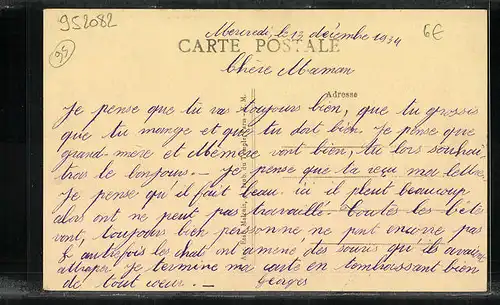 952082
6€
95
Mercredi, le 13 décembre 1934
CARTE POSTALE
Chère Maman
Adresse
Je pense que tu vas toujours bien, que tu grossis
que tu mange et que tu dort bien. Je pense que
grand-mère et Mémère vont bien, tu lors souhai-
tras le bonjours. — Je pense que ta reçu ma lettre
Je pense qu'il fait beau. ici il pleut beaucoup
alors ont ne peut pas travaillé. Toutes les bêtes
vont, toujours bien personne ne peut encore pas
autrefois les chats ont amené des souris qu'ils avaient
attraper. Je termine ma carte en t'embrassant bien
de tout cœur. — Georges